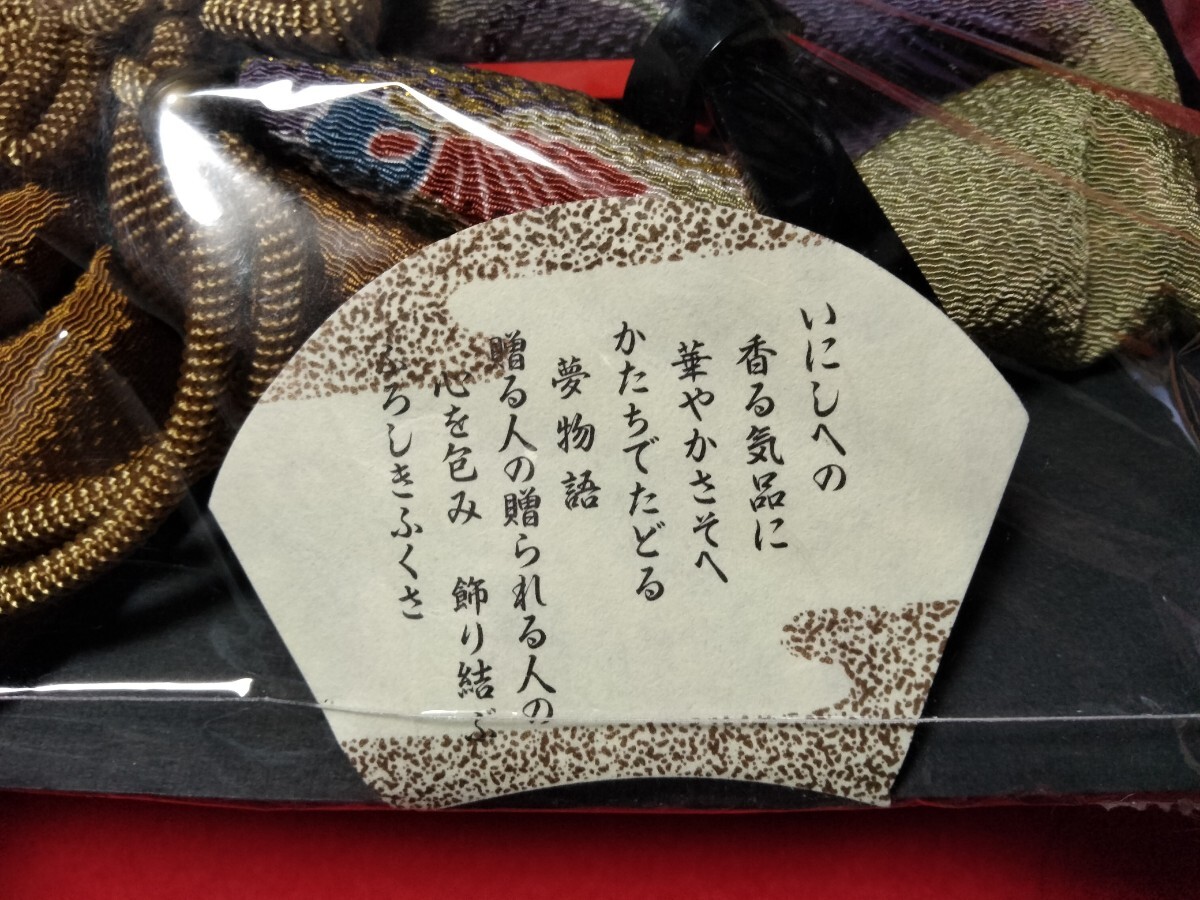 いにしへの
香る気品に
華やかさそへ
かたちでたどる
夢物語
贈る人の贈られる人の
心を包み 飾り結ぶ
ふろしきふくさ